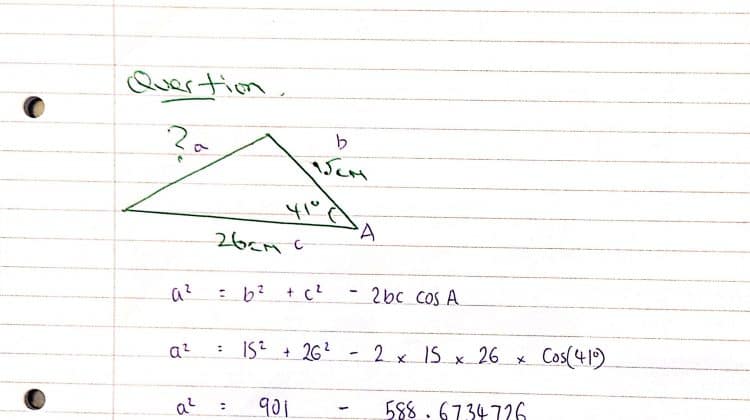 Question.
? a
b
15cm
41°
A
26cm c
a² = b² + c² - 2bc cos A
a² = 15² + 26² - 2 × 15 × 26 × Cos(41°)
a² = 901 - 588.6734726